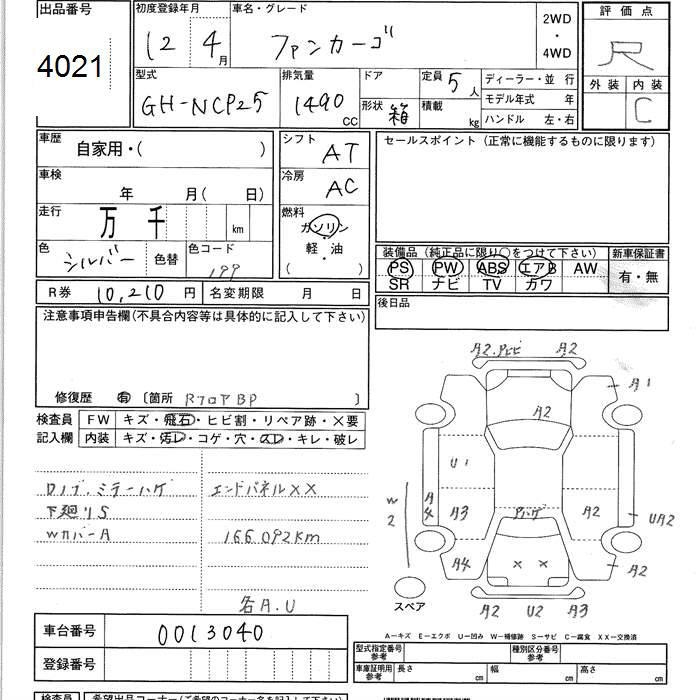 出品番号
4021
初度登録年月
12 4月
車名・グレード
ファンカーゴ
2WD
・
4WD
評価点
R
外装 内装
C
型式
GH-NCP25
排気量
1490 CC
ドア
形状 箱
定員 5人
積載 kg
ディーラー・並 行
モデル年式 年
ハンドル 左・右
車歴
自家用・( )
車検
年 月( 日)
走行
万 千 km
色
シルバー 色替
色コード
199
シフト
AT
冷房
AC
燃料
ガソリン
軽・油
( )
セールスポイント (正常に機能するものに限ります)
装備品 (純正品に限り〇をつけて下さい)
PS PW ABS エアB AW
SR ナビ TV カワ
新車保証書
有・無
後日品
R券 10,210 円 名変期限 月 日
注意事項申告欄(不具合内容等は具体的に記入して下さい)
修復歴 有 〔箇所 RフロアBP 〕
検査員 FW キズ・飛石・ヒビ割・リペア跡・×要
記入欄 内装 キズ・汚レ・コゲ・穴・スレ・キレ・破レ
ロノブ、ミラーハゲ
下廻りS
WカバーA
エンドパネルXX
166,092km
各A.U
車台番号 0013040
登録番号
A2.アレビ A2
A1
A2
U1
A4
W2
A3
アハゲ
A2
UA2
A4
× ×
A2
スペア
A2 U2 A3
A—キズ E—エクボ U—凹み W—補修跡 S—サビ C—腐食 XX—交換済
型式指定番号
参考
種別区分番号
参考
車庫証明用
参考
長さ cm
幅 cm
高さ cm
検査員 希望出品コーナー(ご希望のコーナー名を記入して下さい)